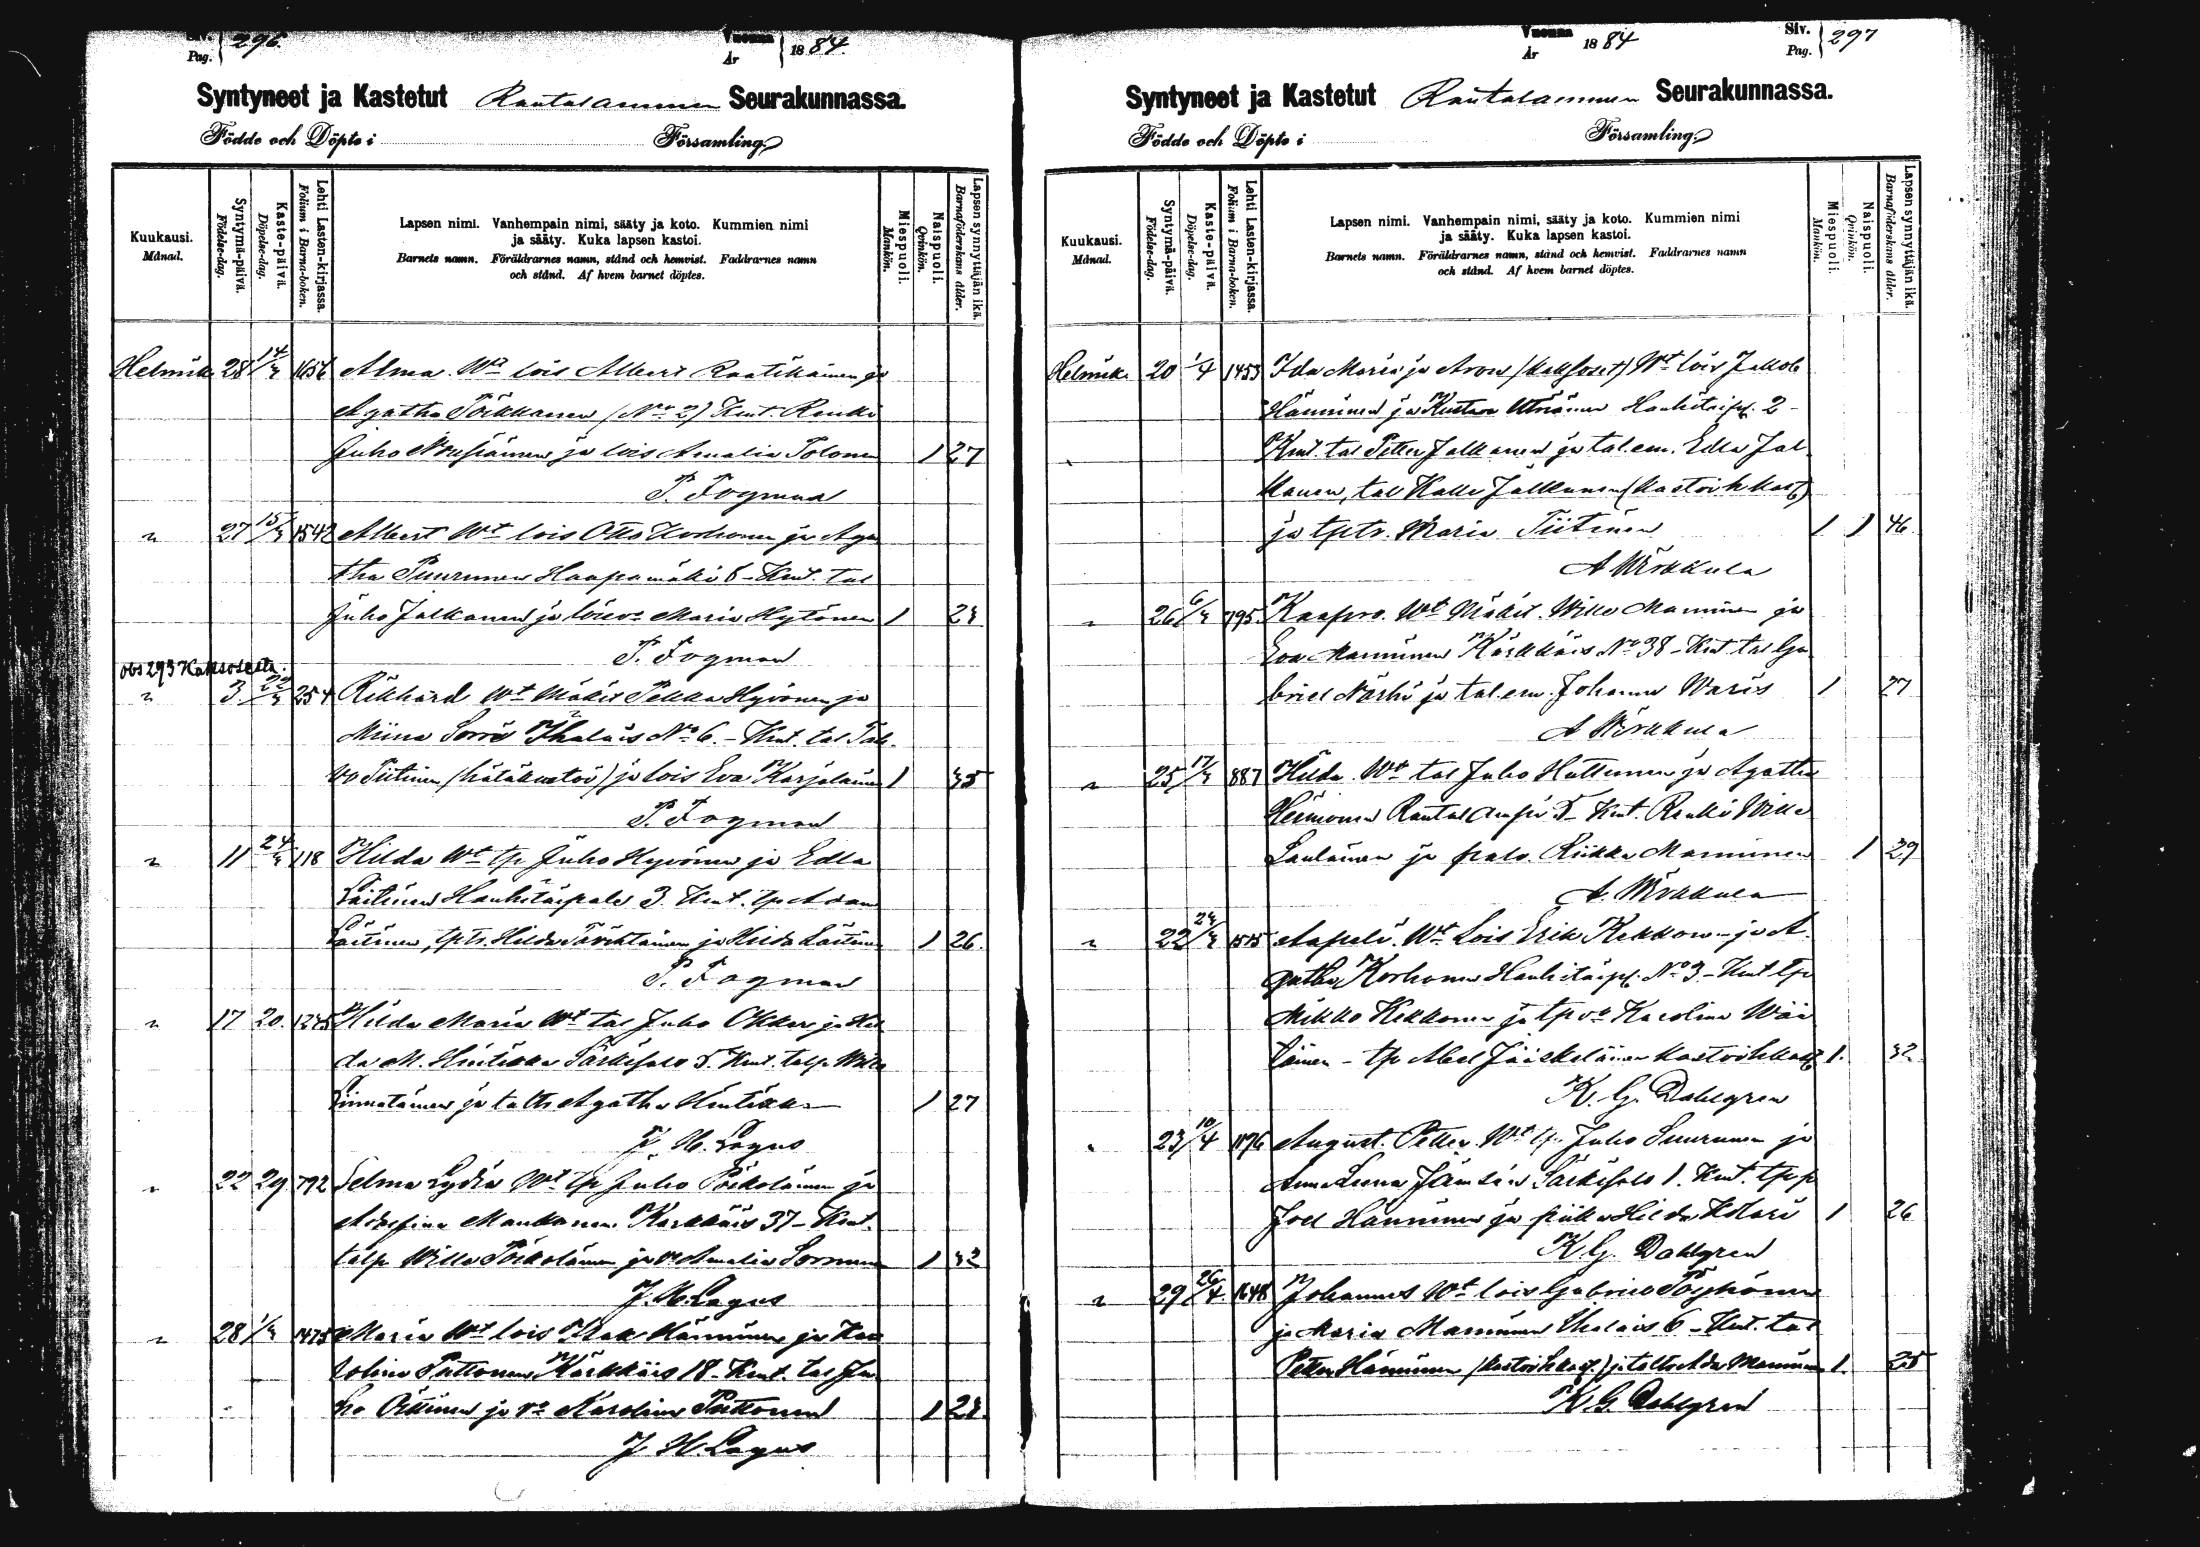 Siv. Pag. 296. Vuonna År 1884.
Syntyneet ja Kastetut Rautalammin Seurakunnassa.
Födde och Döpte i Församling
Kuukausi. Månad.
Syntymä-päivä. Födelse-dag.
Kaste-päivä. Döpelse-dag.
Lehti Lasten-kirjassa. Folium i Barna-boken.
Lapsen nimi. Vanhempain nimi, sääty ja koto. Kummien nimi
ja sääty. Kuka lapsen kastoi.
Barnets namn. Föräldrarnes namn, stånd och hemvist. Faddrarnes namn
och stånd. Af hvem barnet döptes.
Miespuoli. Mankön.
Naispuoli. Qvinkön.
Lapsen synnyttäjän ikä. Barnaföderskans ålder.
Helmik. 28 14/3 1656 Alma. Wt lois Albert Raatikainen ja
Agatha Pöikkanen (No 2) Kmt. Renki
Juho Nousiainen ja lois Amalia Tolonen 1 27
P. Fogman
" 27 15/3 1542 Albert Wt lois Otto Korhonen ja Aga
tha Puurunen Haapamäki 6 - Kmt. tal
Juho Jalkanen ja loisv Maria Hytönen 1 23
P. Fogman
obs 293 Kaksosista.
" 3. 22/3 254 Rikhard Wt Mäkit Pekka Hyvönen ja
Miina Sorri Ihalais No 6. - Kmt. tal Paa-
vo Tiitinen (hätäkastoi) ja lois Eva Karjalainen 1 35
P. Fogman
" 11 24/3 118 Hilda Wt tp Juho Hyvönen ja Edla
Laitinen Hankitaipale 3. Kmt. tp Adam
Laitinen, tptr. Hilda Tarvainen ja Hilda Laitinen 1 26.
P. Fogman
" 17 20. 1245 Hilda Maria Wt tal Juho Okker ja Hil
da M. Hintikka Särkisalo 5. Kmt. talp Wille
Linnatainen ja taltr Agatha Hintikka 1 27
J. H. Lagus
" 22 29 792 Selma Lydia Wt tp Juho Pöikolainen ja
Adolfina Maukonen Karkkais 37 - Kmt.
talp Wille Pöikolainen ja v Amalia Sormunen 1 32
J. H. Lagus
" 28 1/3 1475 Maria Wt lois Isak Hänninen ja Ka
rolina Puttonen Karkkais 18 - Kmt. tal Ju
ho Oittinen ja vo Karolina Puttonen 1 23.
J. H. Lagus
Vuonna År 1884 Siv. Pag. 297
Syntyneet ja Kastetut Rautalammin Seurakunnassa.
Födde och Döpte i Församling
Kuukausi. Månad.
Syntymä-päivä. Födelse-dag.
Kaste-päivä. Döpelse-dag.
Lehti Lasten-kirjassa. Folium i Barna-boken.
Lapsen nimi. Vanhempain nimi, sääty ja koto. Kummien nimi
ja sääty. Kuka lapsen kastoi.
Barnets namn. Föräldrarnes namn, stånd och hemvist. Faddrarnes namn
och stånd. Af hvem barnet döptes.
Miespuoli. Mankön.
Naispuoli. Qvinkön.
Lapsen synnyttäjän ikä. Barnaföderskans ålder.
Helmik. 20 1/4 1453 Ida Maria ja Aron (kaksoset) Wt lois Jakob
Hänninen ja Kustava Utriainen Hankitaip. 2 -
Kmt. tal Petter Jalkanen ja tal.em. Edla Jal-
kanen, tal Kalle Jalkanen (kastoi h.kast)
ja tptr. Maria Tiitinen 1 1 46
A Wirkkula
" 26 6/3 795. Kaapro. Wt Mäkit. Wille Manninen ja
Eva Manninen Karkkais No 38 - Kmt tal Ga
briel Närhi ja tal.em. Johanna Waris 1 27
A Wirkkula
" 25 17/3 887 Hilda. Wt tal Juho Huttunen ja Agatha
Heimonen Rautalampi 5 - Kmt. Renki Wille
Laulainen ja palv. Riikka Manninen 1 29
A. Wirkkula
" 22 24/3 1515 Aapeli. Wt Lois Erik Kekkonen ja A-
gatha Korhonen Hankitaip. No 3 - Kmt tp
Mikko Kekkonen ja tp vo Karolina Wäi
täinen - tp Abel Jääskeläinen kastoi h.kast 1. 32
K. G. Dahlgren
" 23 10/4 1176 August. Petter. Wt tp Juho Suurunen ja
Anna Leena Jämsén Särkisalo 1. Kmt. tpp
Joel Hänninen ja piika Hilda Kolari 1 26
K. G. Dahlgren
" 29 26/4. 1648 Johannes Wt lois Gabriel Pöyhönen
ja Maria Manninen Ihalais 6 - Kmt. tal
Petter Hänninen (kastoi h.kast.) ja taltr Ada Manninen 1. 25
K. G. Dahlgren